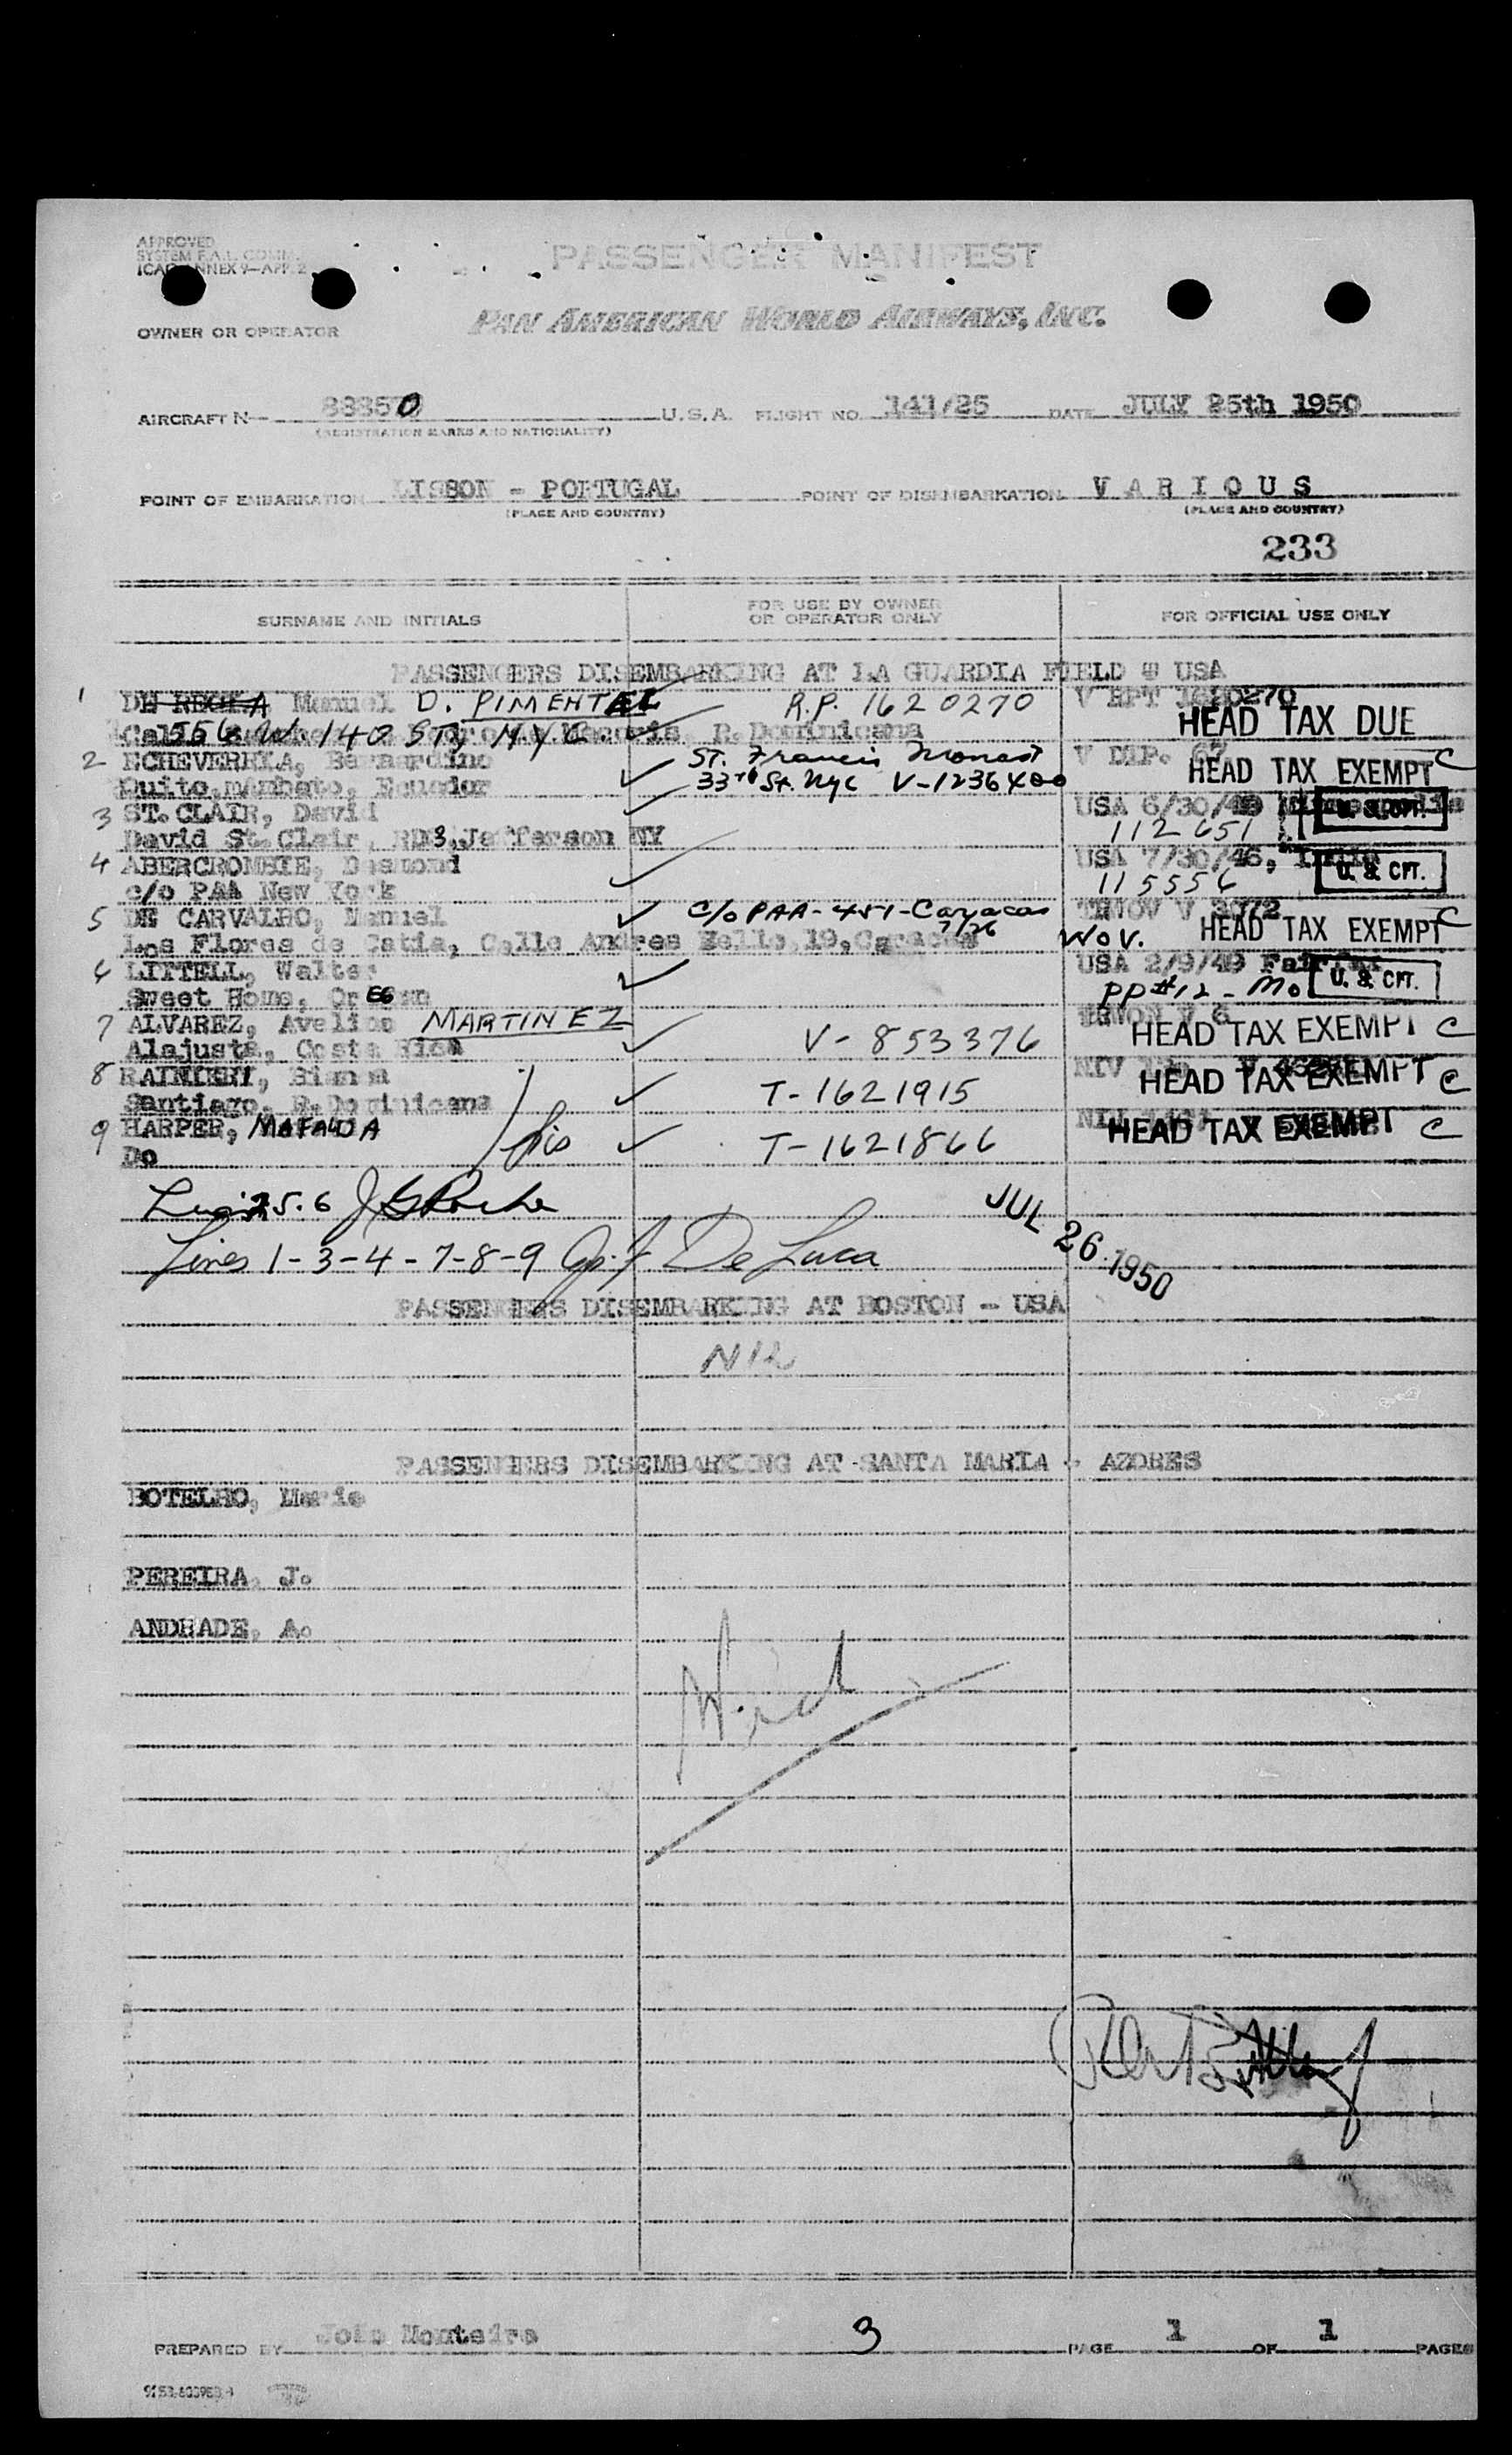 APPROVED
SYSTEM F.A.L. COMM.
ICAO ANNEX 9-APP. 2
PASSENGER MANIFEST
OWNER OR OPERATOR
PAN AMERICAN WORLD AIRWAYS, INC.
AIRCRAFT N- 88850 U.S.A. FLIGHT NO. 141/25 DATE JULY 25th 1950
(REGISTRATION MARKS AND NATIONALITY)
POINT OF EMBARKATION LISBON - PORTUGAL POINT OF DISEMBARKATION V A R I O U S
(PLACE AND COUNTRY) (PLACE AND COUNTRY)
233
SURNAME AND INITIALS FOR USE BY OWNER OR OPERATOR ONLY FOR OFFICIAL USE ONLY
PASSENGERS DISEMBARKING AT LA GUARDIA FIELD USA
1 Manuel D. PIMENTAL R.P. 1620270 V RPT 1620270
556 W. 140 ST, N.Y.C. R. Dominicana HEAD TAX DUE
2 ECHEVERRIA, Bernardino St. Francis Monast V DIP. HEAD TAX EXEMPT C
Quito, Ambato, Ecuador 33rd St. Nyc V-1236400
3 ST. CLAIR, David USA 6/30/49 U. S. CIT.
David St. Clair, RD3, Jefferson NY 112651
4 ABERCROMBIE, Desmond USA 7/30/46, U. S. CIT.
c/o PAA New York 115556
5 DE CARVALHO, Manuel c/o PAA-451-Caracas 7/26 HEAD TAX EXEMPT C
Los Flores de Catia, Calle Andres Bello, 19, Caracas WOV.
6 LITTELL, Walter USA 2/9/49 U. S. CIT.
Sweet Home, Oregon PP #12 - Mo
7 ALVAREZ, Avelino MARTINEZ V-853376 HEAD TAX EXEMPT C
Alajuela, Costa Rica
8 RAINIERI, Bianca T-1621915 NIV HEAD TAX EXEMPT C
Santiago, R. Dominicana
9 HARPER, MAFALDA T-1621866 HEAD TAX EXEMPT C
Do
25.6
JUL 26 1950
Lines 1-3-4-7-8-9 De Luca
PASSENGERS DISEMBARKING AT BOSTON - USA
NIL
PASSENGERS DISEMBARKING AT SANTA MARIA - AZORES
BOTELHO, Maria
PEREIRA J.
ANDRADE, A.
PREPARED BY Joao Monteiro 3 PAGE 1 OF 1 PAGES